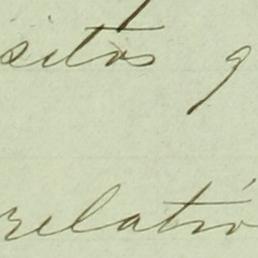 sitos q
relativo